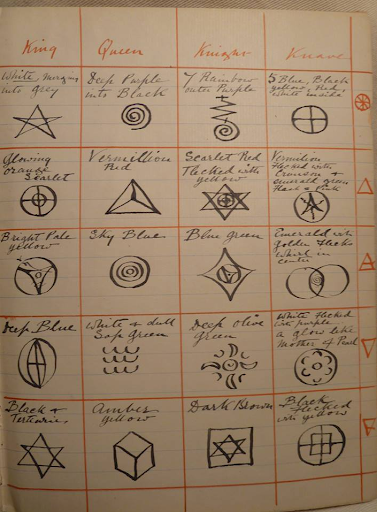 King Queen Knight Knave
White, merging
into Grey
Deep Purple
into Black
7 Rainbow
outer Purple
5 Blue, Black
yellow, Red,
White inside
Glowing
orange
Scarlet
Vermillion
Red
Scarlet Red
flecked with
yellow
Vermilion
flecked with
Crimson &
emerald green
Bright Pale
yellow
Sky Blue
Blue green
Emerald with
Golden flecks
whirl in
centre
Deep Blue
White & dull
Sap Green
Deep olive
Green
White flecked
with purple
a glow like
Mother of Pearl
Black &
Tertiaries
Amber
yellow
Dark Brown
Black
flecked
with yellow